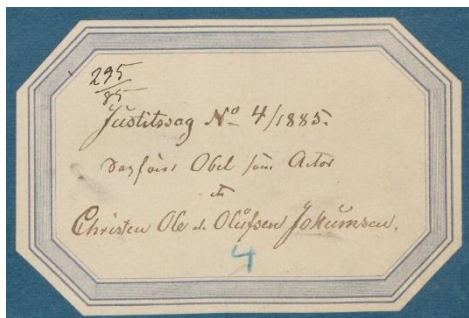 295
85
Justitssag No 4/1885.
Sagfører Obel som Actor
ctr
Christen Ole Olufsen Jokumsen.
4